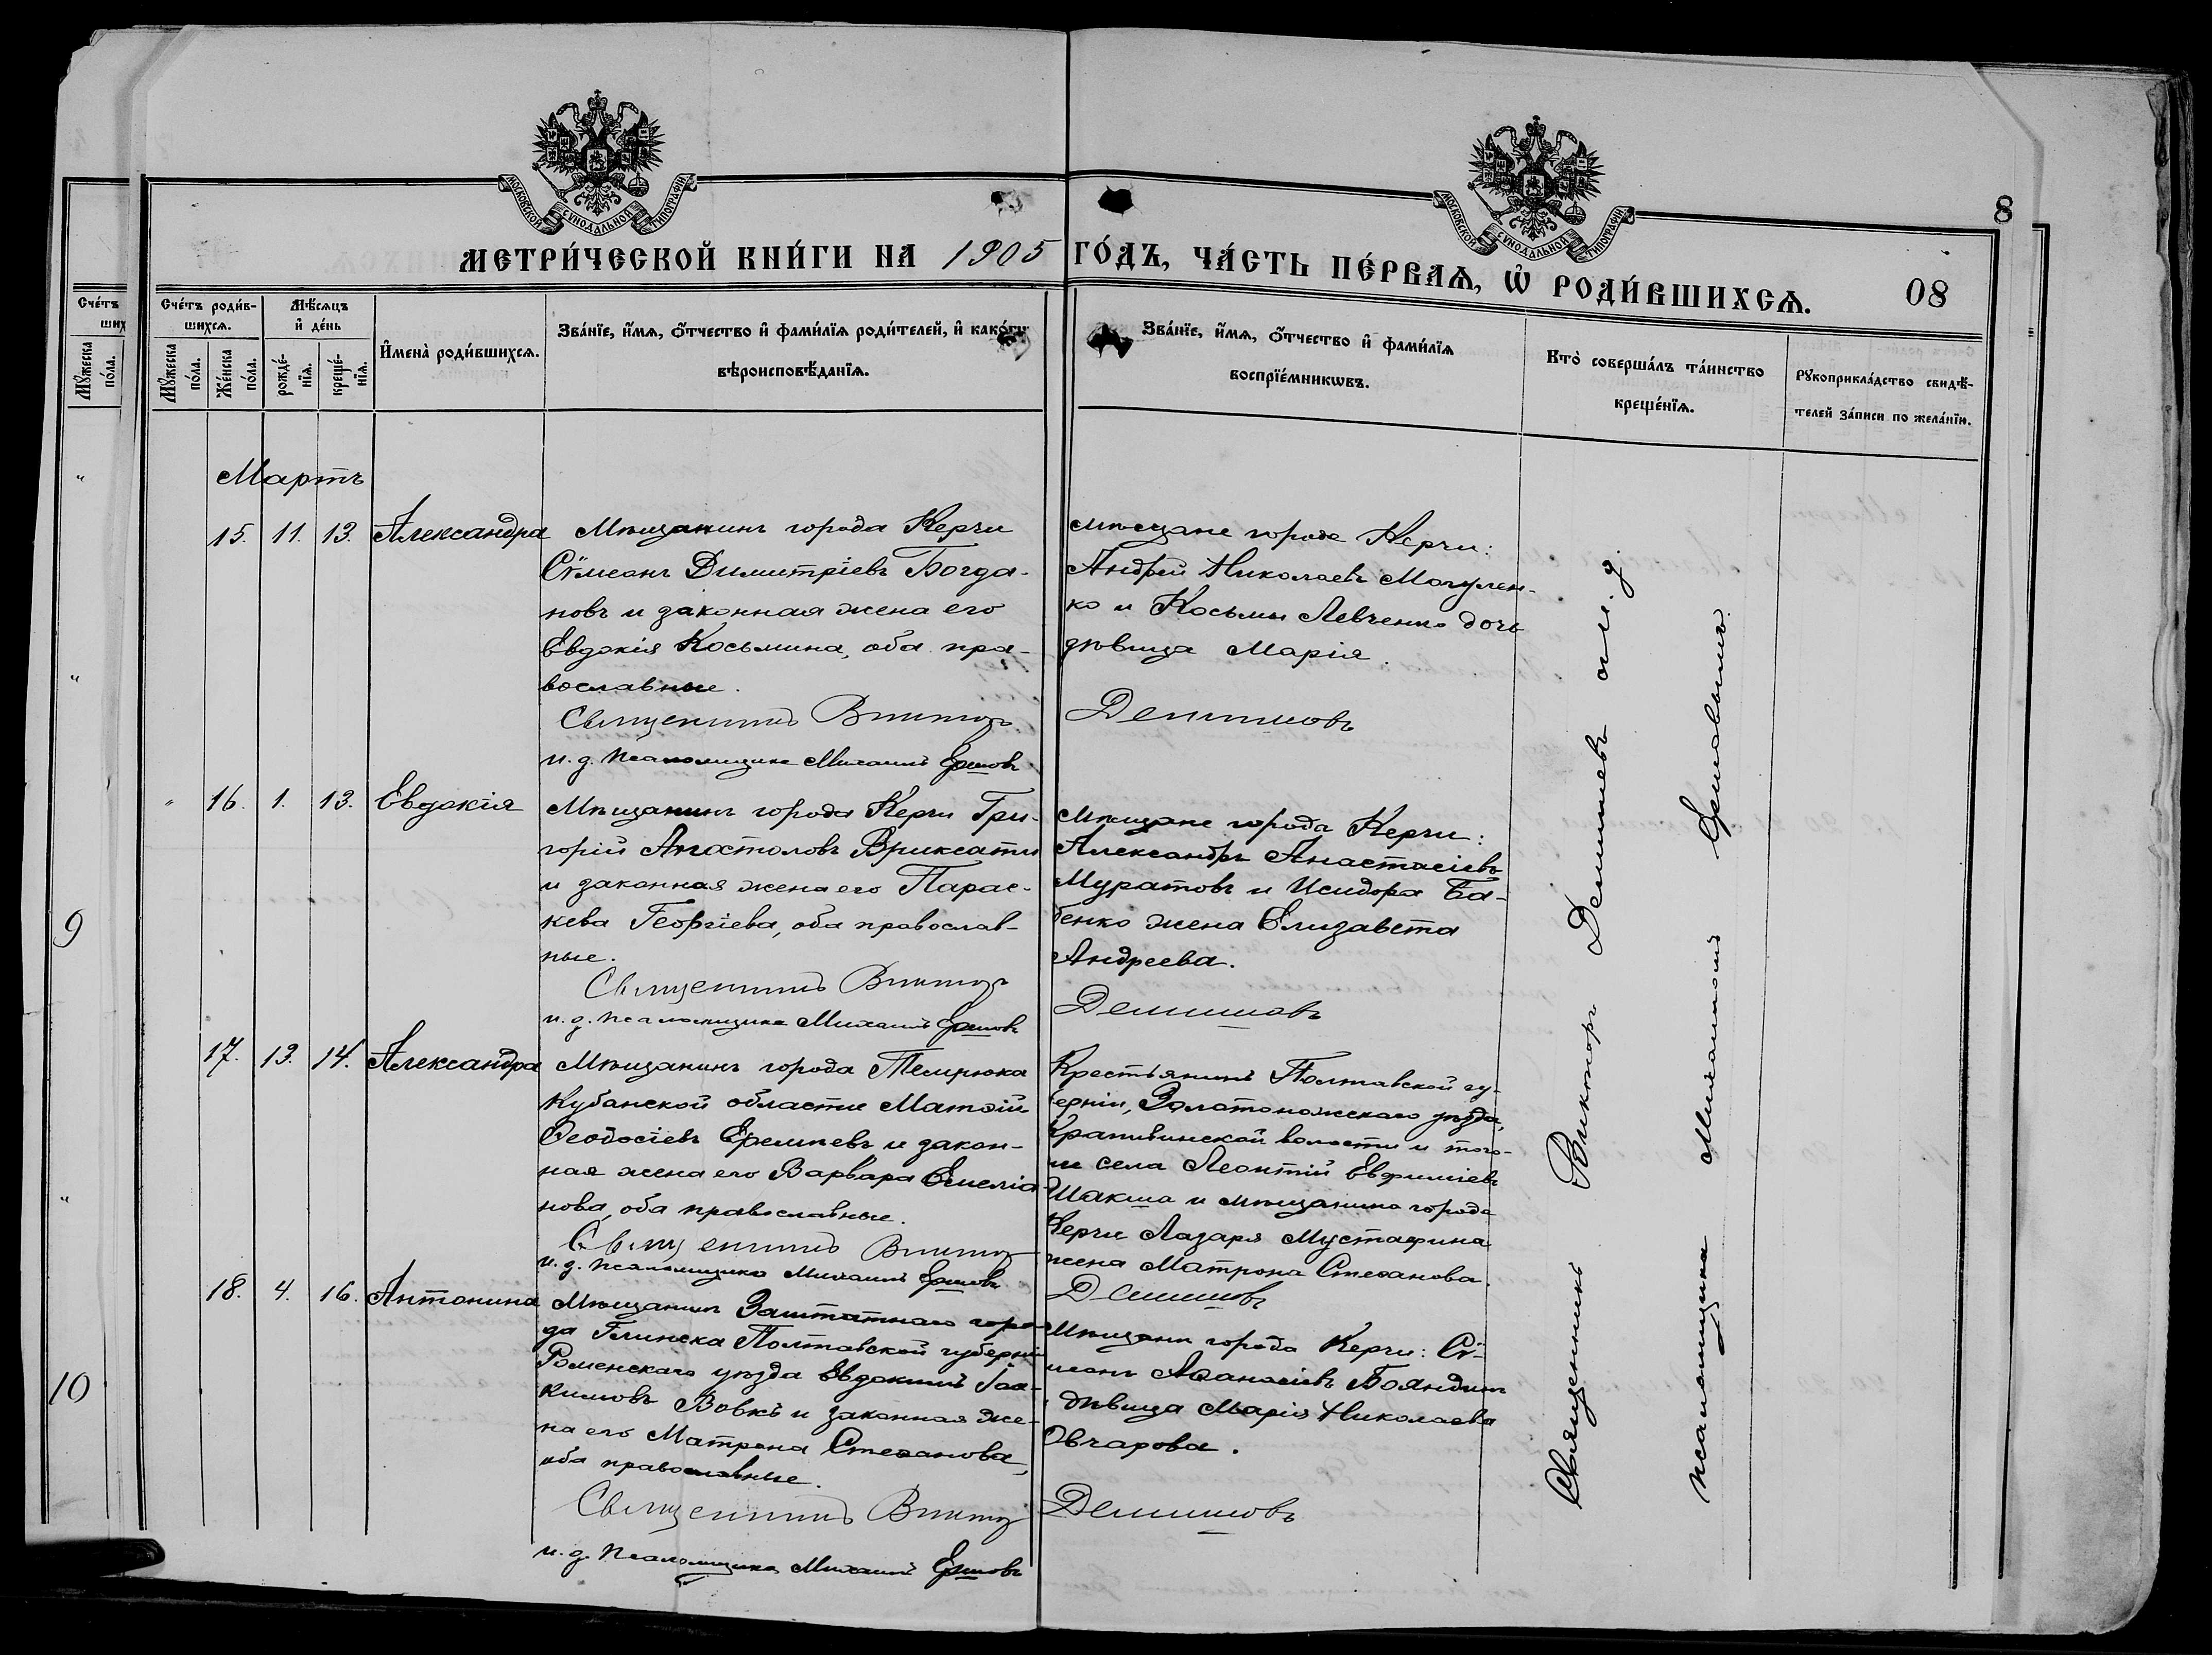 МОСКОВСКОЙ СУНОДАЛЬНОЙ ТИПОГРАФІИ
МОСКОВСКОЙ СУНОДАЛЬНОЙ ТИПОГРАФІИ
8
МЕТРИ́ЧЕСКОЙ КНИ́ГИ НА 1905 ГО́ДЪ, ЧА́СТЬ ПЕ́РВАѦ, Ѡ҆ РОДИ́ВШИХСѦ.
08
Сче́тъ
ших
Мꙋ́жеска по́ла.
Сче́тъ роди́в-
шихсѧ.
Мꙋ́жеска по́ла.
Же́нска по́ла.
Мѣ́сѧцъ
и҆ де́нь
рожде́-
нїѧ.
креще́-
нїѧ.
И҆мена̀ роди́вшихсѧ.
Зва́нїе, и҆́мѧ, ѻ҆́тчество и҆ фами́лїѧ роди́телей, и҆ како́гѡ
вѣроисповѣ́данїѧ.
Зва́нїе, и҆́мѧ, ѻ҆́тчество и҆ фами́лїѧ
воспрїе́мникѡвъ.
Кто̀ соверша́лъ та́инство
креще́нїѧ.
Рꙋкоприкла́дство свидѣ́-
телей за́писи по жела́нїю.
Мартъ
15. 11. 13. Александра
Мѣщанинъ города Керчи
Сѵмеонъ Димитріевъ Богда-
новъ и законная жена его
Евдокія Косьмина, оба пра-
вославные.
Священникъ Викторъ
и. д. псаломщика Михаилъ Ершовъ
мѣщане города Керчи:
Андрей Николаевъ Могулен-
ко и Косьмы Левченко дочь
дѣвица Марія.
Демишевъ
" 16. 1. 13. Евдокія
Мѣщанинъ города Керчи Гри-
горій Апостоловъ Вриксати
и законная жена его Парас-
кева Георгіева, оба православ-
ные.
Священникъ Викторъ
и. д. псаломщика Михаилъ Ершовъ
мѣщане города Керчи:
Александръ Анастасіевъ
Муратовъ и Исидора Ба-
бенко жена Елизавета
Андреева.
Демишевъ
17. 13. 14. Александра
Мѣщанинъ города Темрюка
Кубанской области Матѳій
Ѳеодосіевъ Еремѣевъ и закон-
ная жена его Варвара Емеліа-
нова, оба православные.
Священникъ Викторъ
и. д. псаломщика Михаилъ Ершовъ
Крестьянинъ Полтавской гу-
берніи, Золотоношскаго уѣзда,
Крапивинской волости и того-
же села Леонтій Евфиміевъ
Шакша и мѣщанина города
Керчи Лазаря Мустафина
жена Матрона Стефанова.
Демишевъ
18. 4. 16. Антонина
Мѣщанинъ Заштатнаго горо-
да Глинска Полтавской губерніи
Роменскаго уѣзда Евдокимъ Іоа-
кимовъ Вовкъ и законная же-
на его Матрона Стефанова,
оба православные.
Священникъ Викторъ
и. д. псаломщика Михаилъ Ершовъ
Мѣщане города Керчи: Сѵ-
меонъ Аѳанасіевъ Бояндин
и дѣвица Марія Николаева
Овчарова.
Демишевъ
Священникъ Викторъ Демишевъ съ и. д.
псаломщика Михаиломъ Ершовымъ.
"
"
9
"
10